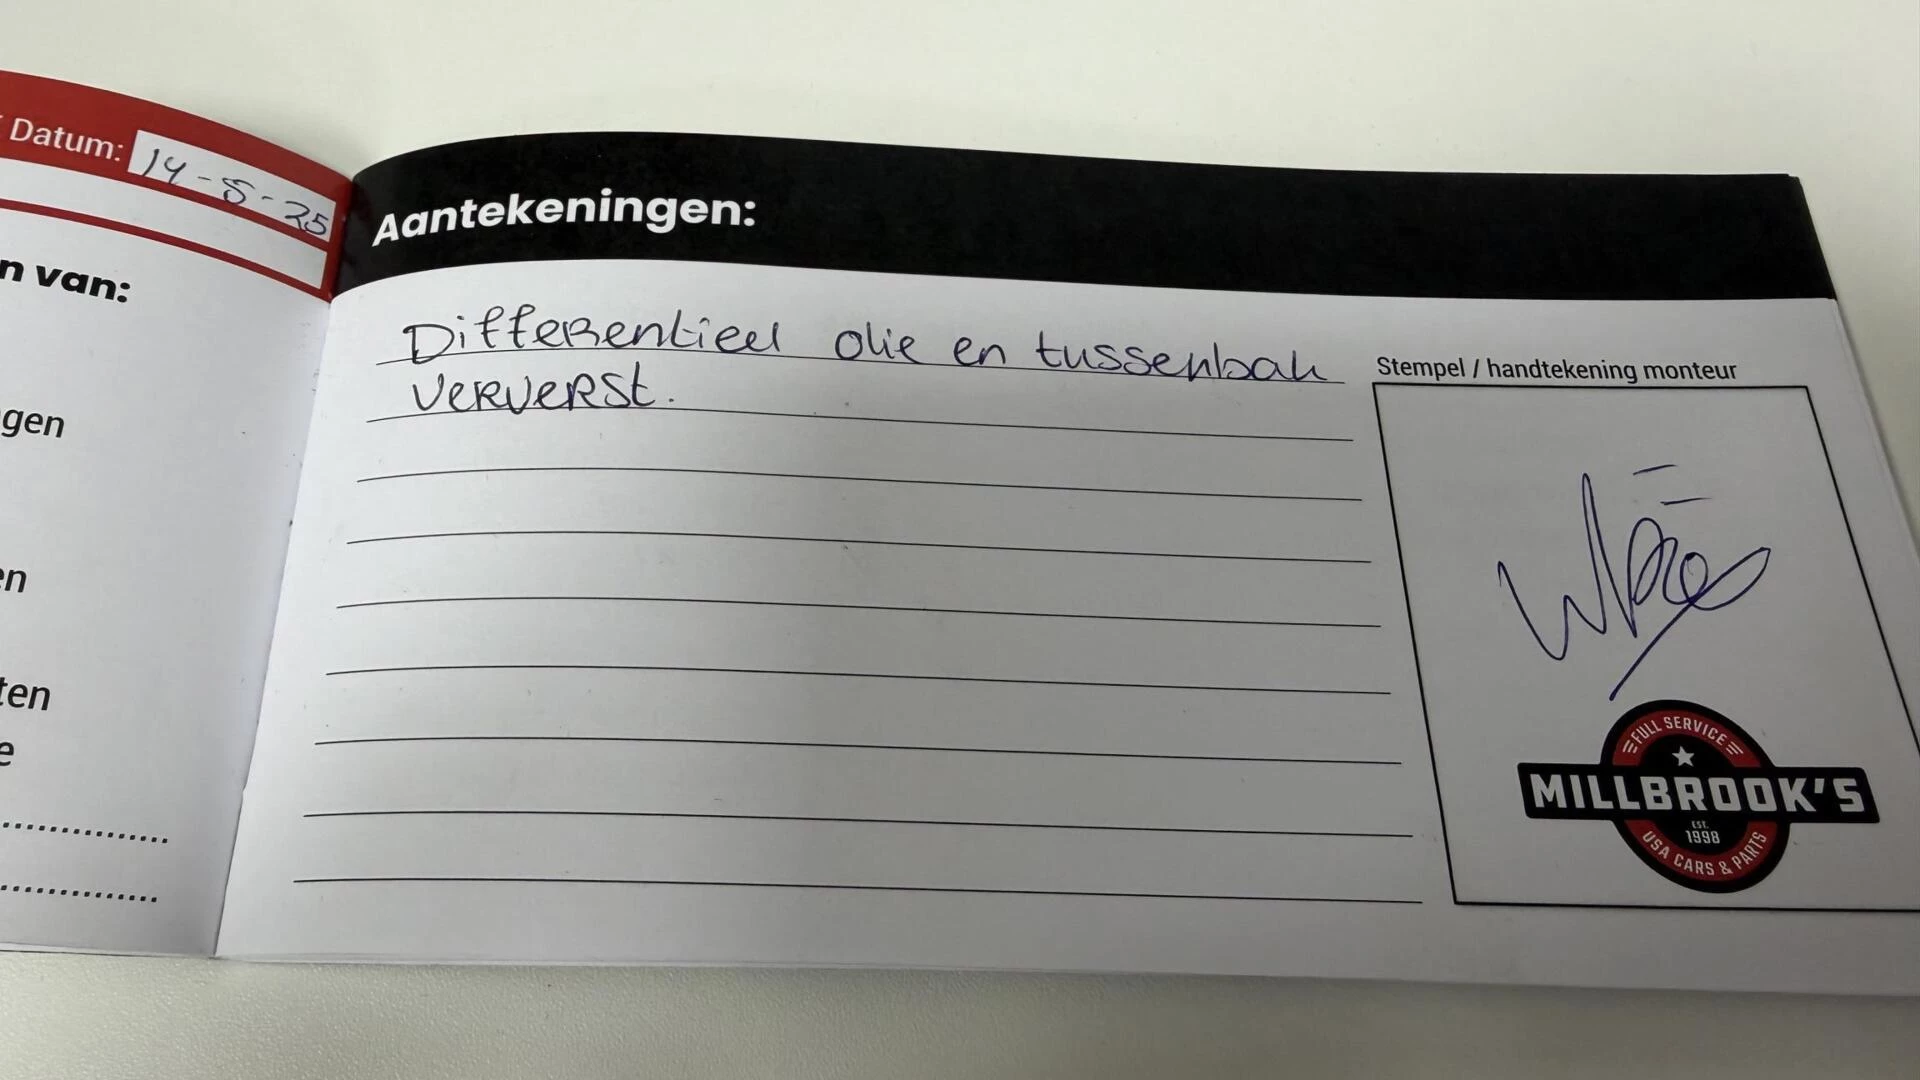 Datum: 14-5-25
n van:
gen
en
ten
e
Aantekeningen:
Differentieel olie en tussenbak
ververst.
Stempel / handtekening monteur
FULL SERVICE
MILLBROOK'S
EST.
1998
USA CARS & PARTS